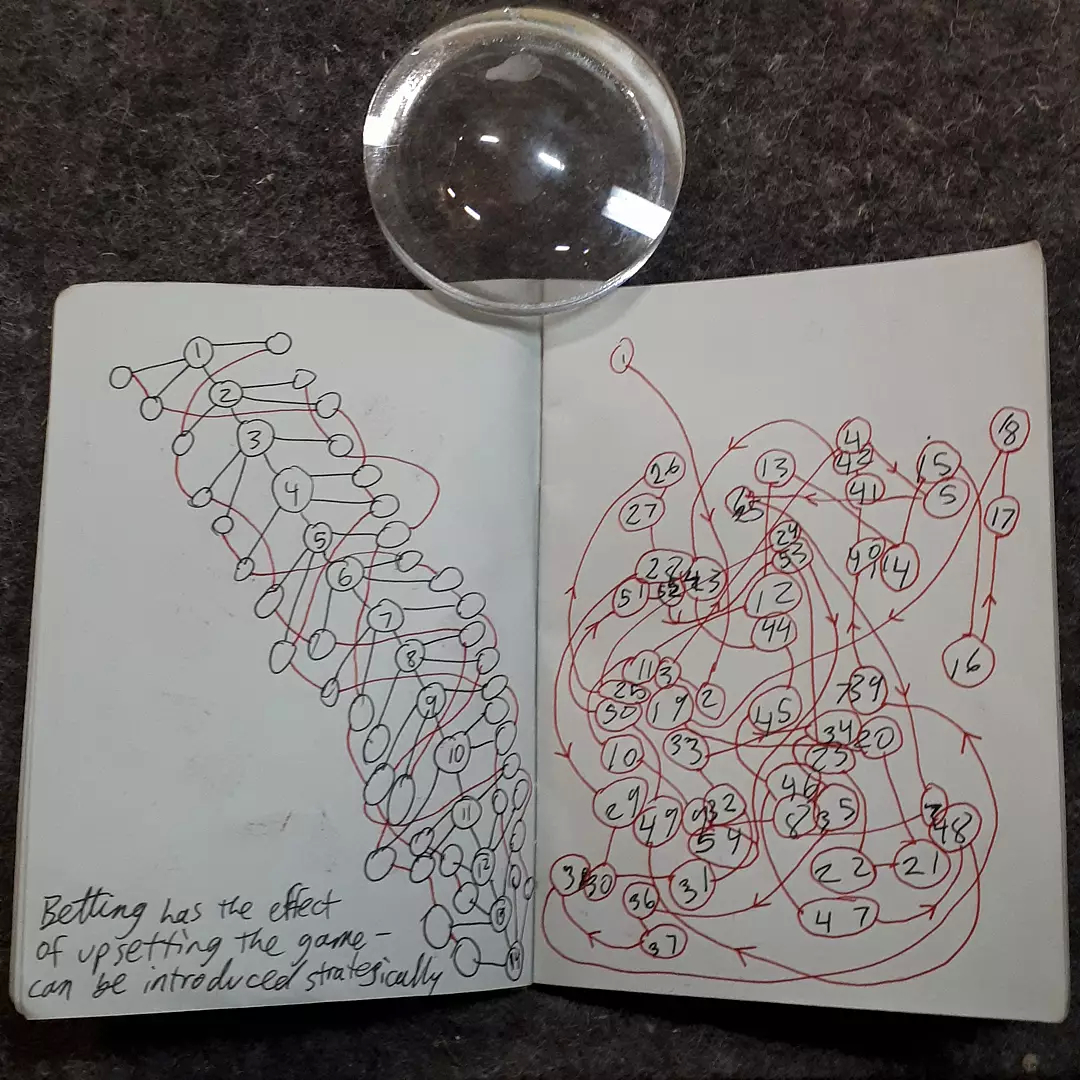 1
2
3
4
5
6
7
8
9
10
11
12
13
14
Betting has the effect
of upsetting the game –
can be introduced strategically
1
4
18
42
26
13
15
41
5
27
17
24
53
40
14
43
51
52
12
44
16
11
3
25
39
50
19
2
45
34
20
10
33
23
46
29
32
35
49
9
8
48
54
22
21
31
30
36
47
37